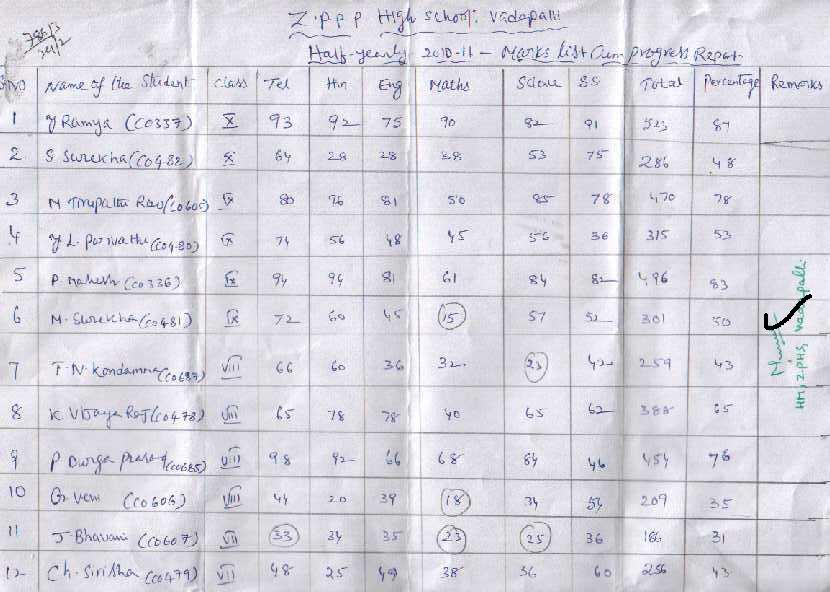 Z.P.P.P High school: Vadapalli
Half-yearly 2010-11 - Marks List Cum progress Report
S.NO Name of the Student class Tel Hin Eng Maths Science SS Total Percentage Remarks
1 Y Ramya (C0337) X 93 92 75 90 82 91 523 87
2 S Surekha (C0482) X 64 28 28 38 53 75 286 48
3 N Tirupathi Rao (C0605) IX 80 96 81 50 85 78 470 78
4 Y L. Parvathi (C0480) IX 74 56 48 45 56 36 315 53
5 P Mahesh (C0336) IX 94 94 81 61 84 82 496 83
6 M. Surekha (C0481) IX 72 60 45 15 57 52 301 50
7 T. N. Kondamma VIII 66 60 36 32 23 42 259 43
8 K Vijaya Raj (C0478) VIII 65 78 78 40 65 62 388 65
9 P Durga prasad (C0685) VII 98 92 66 68 84 46 454 76
10 G. Veni (C0606) VIII 44 20 39 18 34 54 209 35
11 J. Bhavani (C0607) VII 33 34 35 23 25 36 186 31
12 Ch. Sirisha (C0479) VII 48 25 49 38 36 60 256 43
HM, Z.PHS, Vadapalli